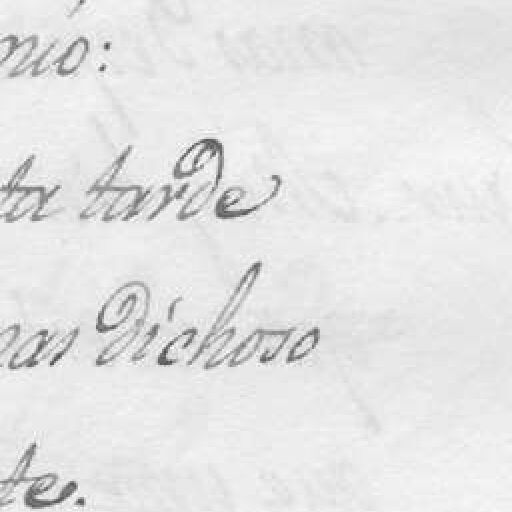 mio:
ta tarde
mas dichoso
te.